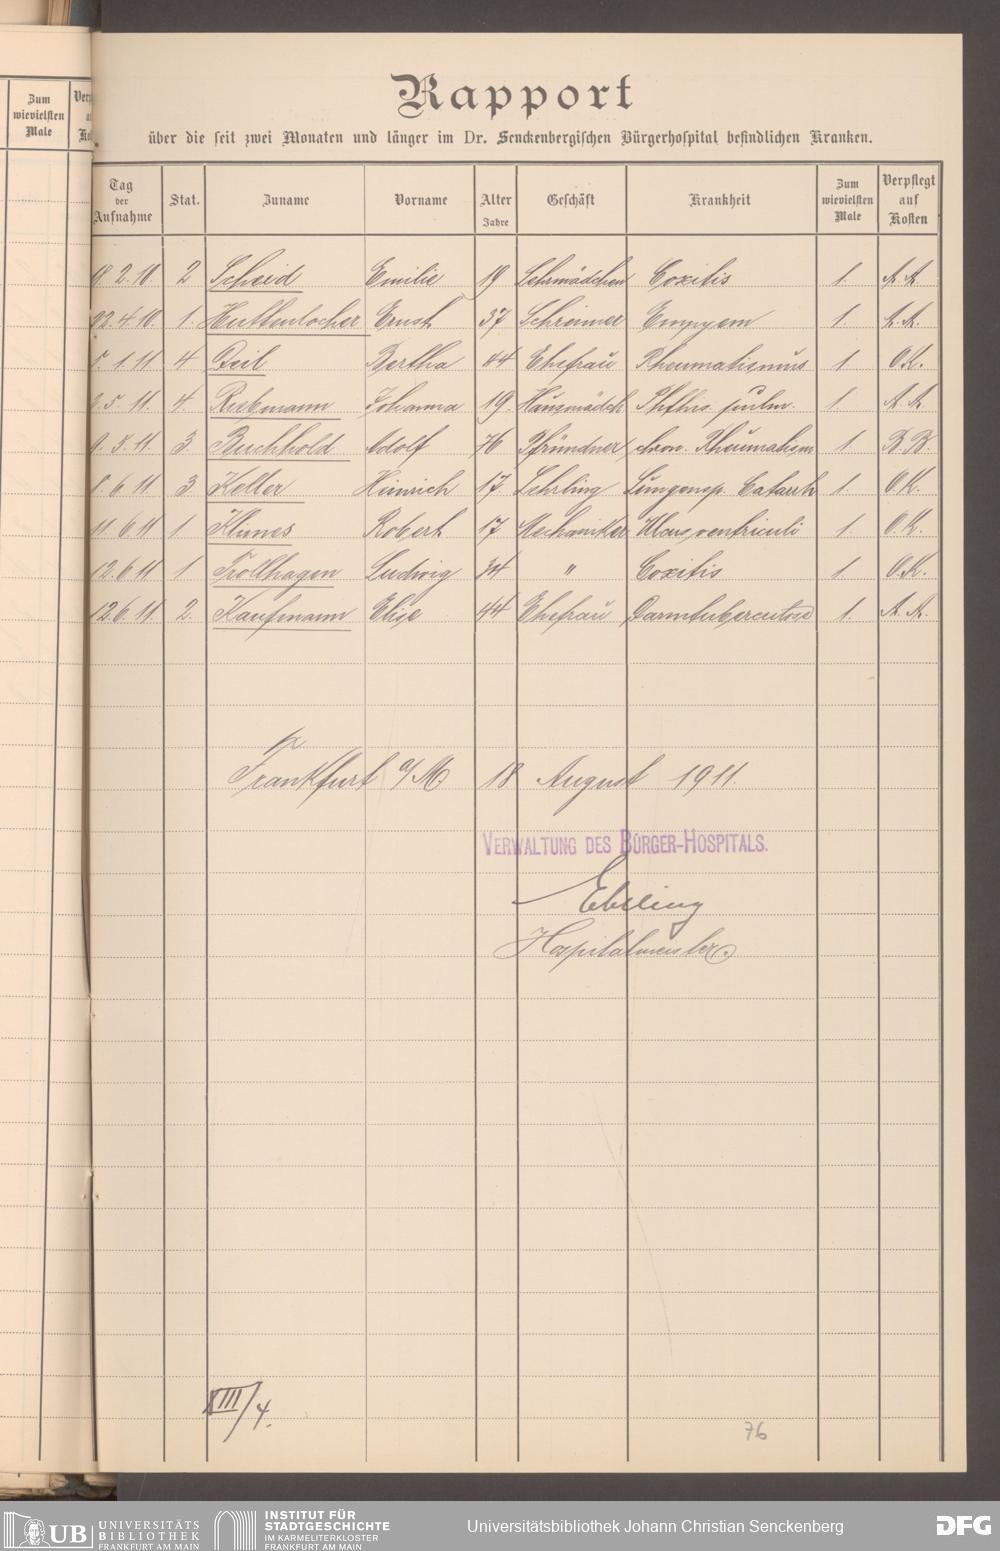 Zum
wievielsten
Male
Rapport
über die seit zwei Monaten und länger im Dr. Senckenbergischen Bürgerhospital befindlichen Kranken.
Tag der Aufnahme Stat. Zuname Vorname Alter Jahre Geschäft Krankheit Zum wievielsten Male Verpflegt auf Kosten
2.10. 2 Scheid Emilie 19 Lehrmädchen Coxitis 1. A. A.
4.10. 1. Huttenlocher Ernst 37 Schreiner Empyem 1. A. A.
5. 1. 11 4 Beil Bertha 44 Ehefrau Rheumatismus 1 O.K.
5. 11. 4. Johanna 19. Hausmädch Phthis. pulm. 1. A. A.
9. 5. 11. 3. Buchhold Adolf 76 Pfründner chron. Rheumatism 1. B. B.
8. 6. 11 3 Keller Heinrich 17. Lehrling Lungensp. Catarrh 1 O.K.
11. 6. 11 1 Klimes Robert 17 Mechaniker Ulcus ventriculi 1. O.K.
12. 6. 11 1 Trollhagen Ludwig 34 " Coxitis 1. O.K.
12. 6. 11. 2. Kaufmann Elise 44 Ehefrau Darmtuberculose 1. A. A.
Frankfurt a/M 18 August 1911.
VERWALTUNG DES BÜRGER-HOSPITALS.
Ebeling
Hospitalmeister.
XIII/4.
76
UB UNIVERSITÄTS
BIBLIOTHEK
FRANKFURT AM MAIN
INSTITUT FÜR
STADTGESCHICHTE
IM KARMELITERKLOSTER
FRANKFURT AM MAIN
Universitätsbibliothek Johann Christian Senckenberg
DFG